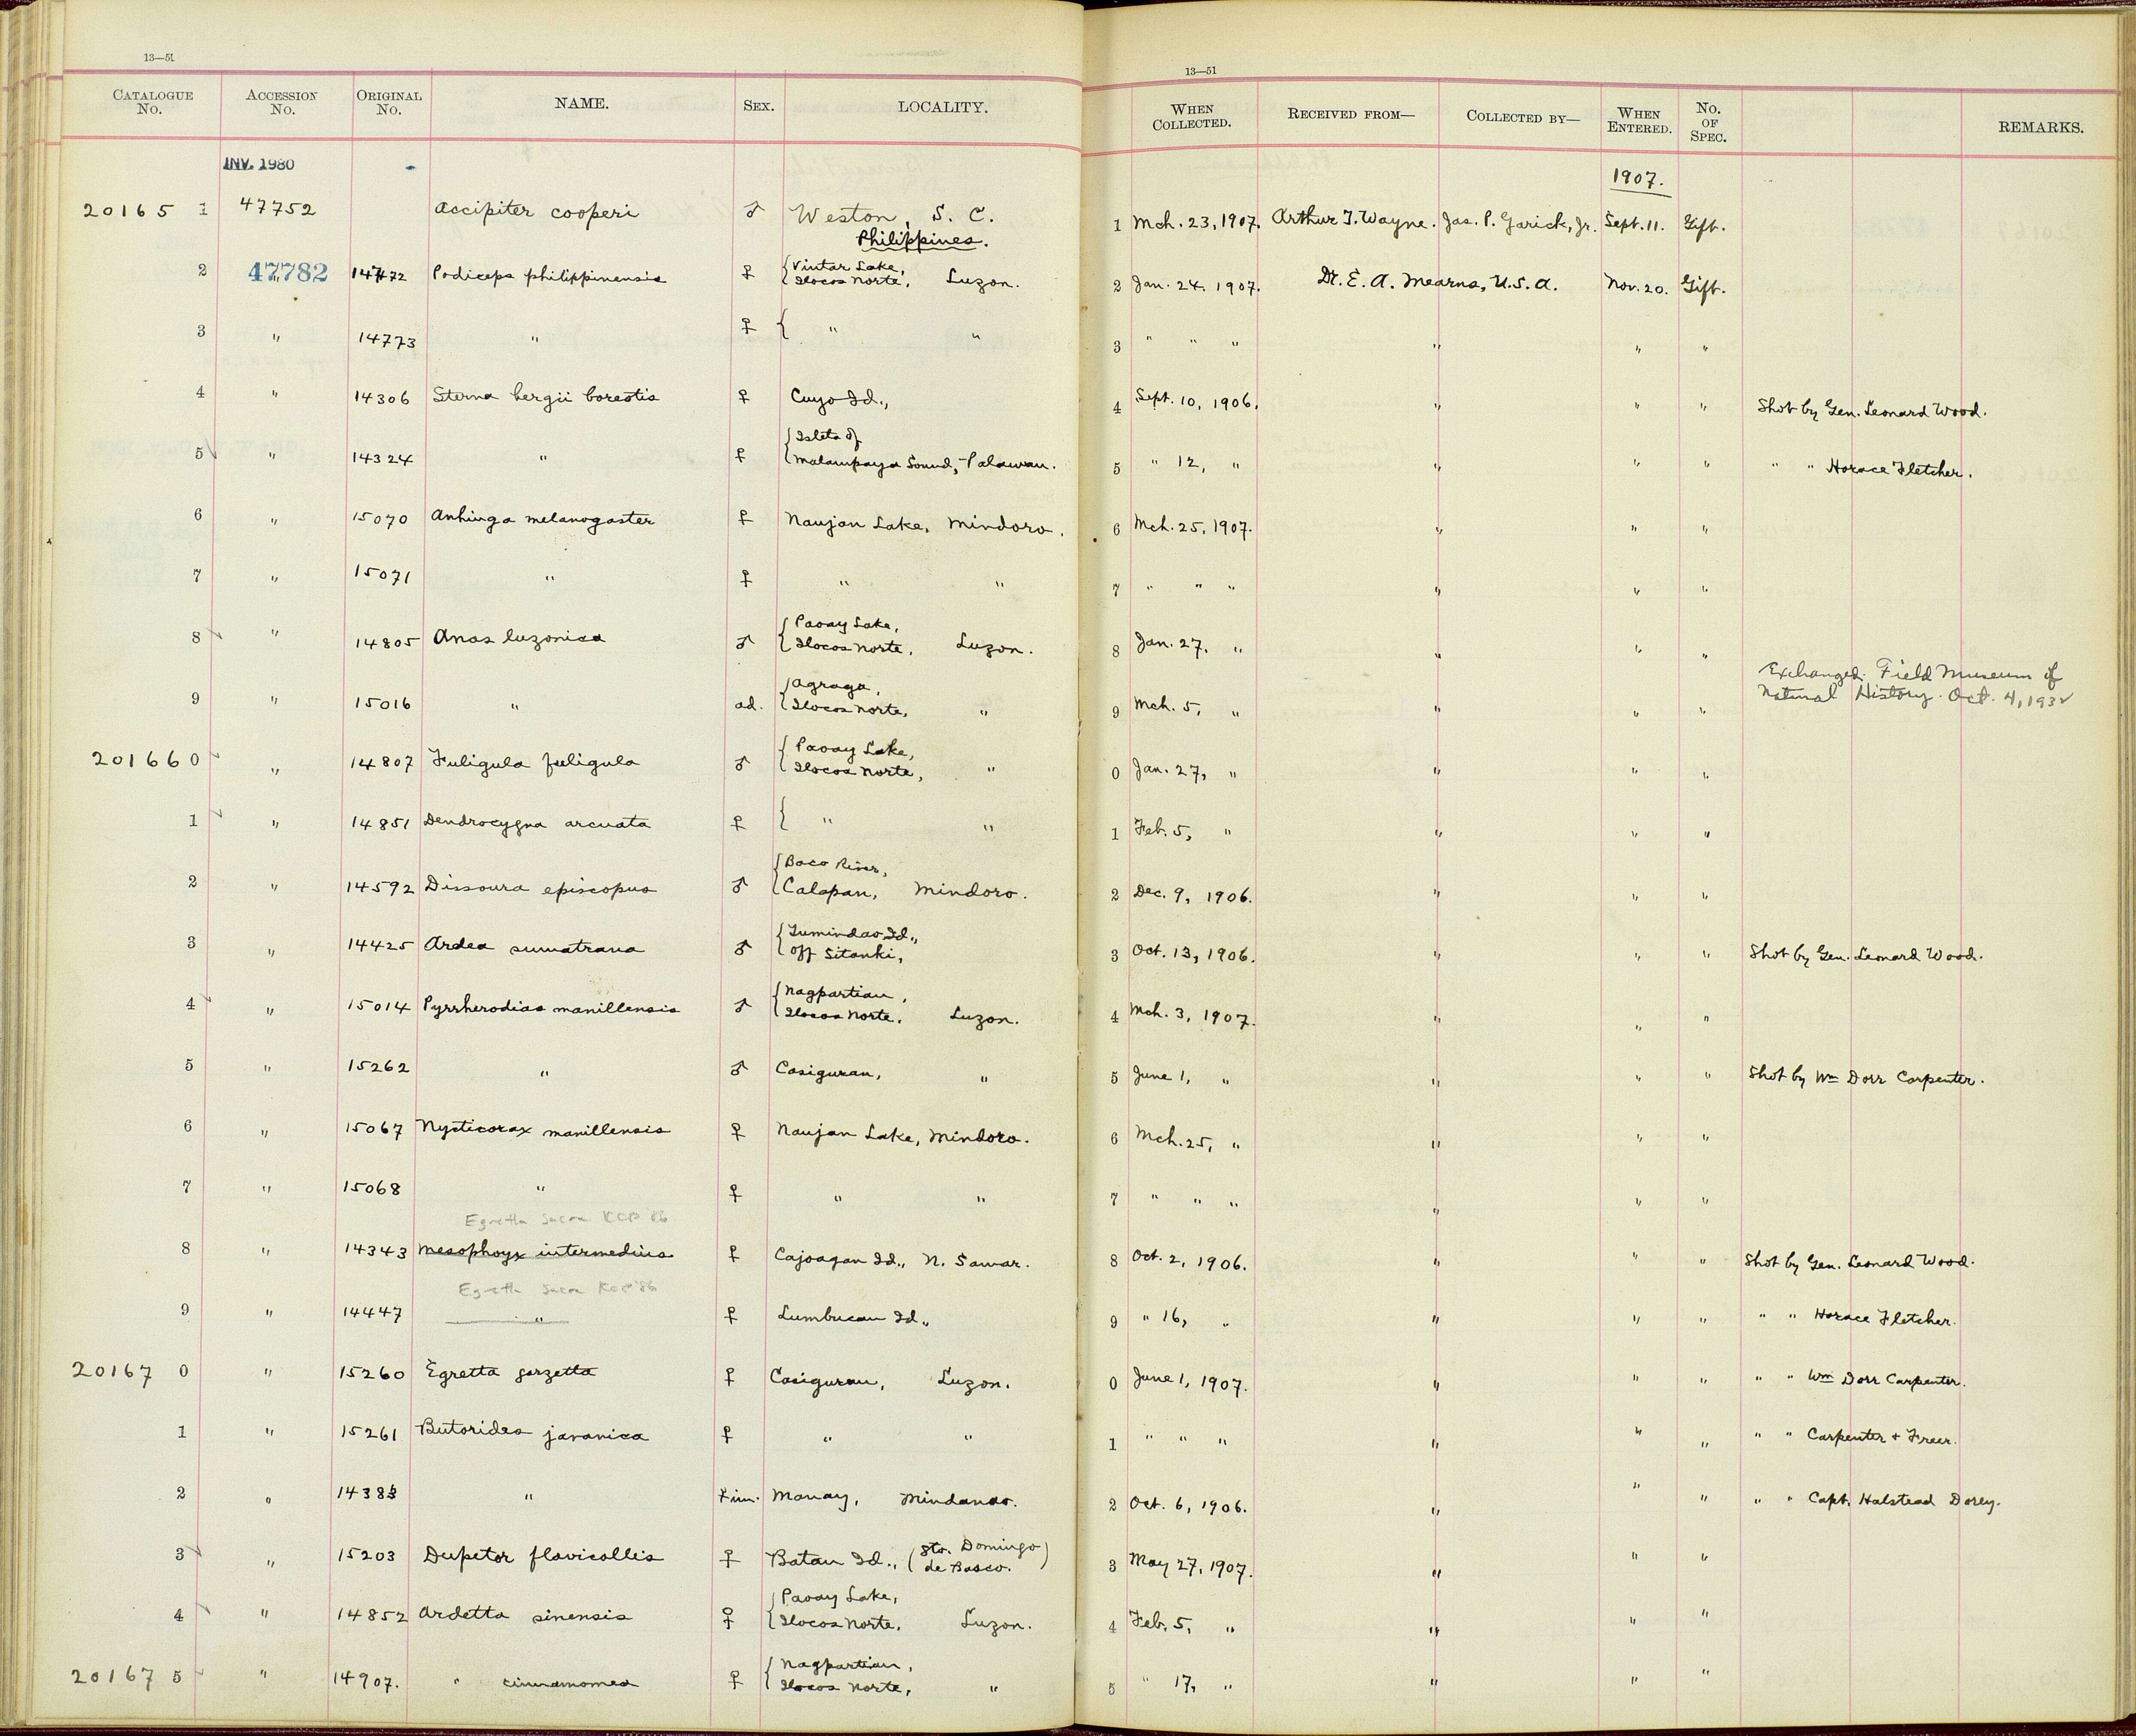 13—51
CATALOGUE No. ACCESSION No. ORIGINAL No. NAME. SEX. LOCALITY.
INV. 1980
20165 1 47752 Accipiter cooperi ♂ Weston, S. C.
Philippines.
2 47782 14772 Podiceps philippinensis ♀ Vintar Lake,
Ilocos Norte, Luzon.
3 " 14773 " ♀ " "
4 " 14306 Sterna bergii boreotis ♀ Cuyo Id.,
5 " 14324 " ♀ Islets of
Malampaya Sound, Palawan.
6 " 15070 Anhinga melanogaster ♀ Naujan Lake, Mindoro.
7 " 15071 " ♀ " "
8 " 14805 Anas luzonica ♂ Paoay Lake,
Ilocos Norte, Luzon.
9 " 15016 " ad. Agraga,
Ilocos Norte, "
20166 0 " 14807 Fuligula fuligula ♂ Paoay Lake,
Ilocos Norte, "
1 " 14851 Dendrocygna arcuata ♀ " "
2 " 14592 Dissoura episcopus ♂ Baco River,
Calapan, Mindoro.
3 " 14425 Ardea sumatrana ♂ Tumindao Id.,
off Sitanki,
4 " 15014 Pyrrherodias manillensis ♂ Nagpartian,
Ilocos Norte, Luzon.
5 " 15262 " ♂ Casiguran, "
6 " 15067 Nycticorax manillensis ♀ Naujan Lake, Mindoro.
7 " 15068 " ♀ " "
Egretta sacra KCP '86
8 " 14343 Mesophoyx intermedius ♀ Cajoagan Id., N. Samar.
Egretta sacra KCP '86
9 " 14447 " ♀ Lumbucan Id.,
20167 0 " 15260 Egretta garzetta ♀ Casiguran, Luzon.
1 " 15261 Butorides javanica ♀ " "
2 " " im. Manay, Mindanao.
3 " 15203 Dupetor flavicollis ♀ Batan Id., (Sto. Domingo
de Basco.)
4 " 14852 Ardetta sinensis ♀ Paoay Lake,
Ilocos Norte, Luzon.
20167 5 " 14907. " cinnamomea ♀ Nagpartian,
Ilocos Norte, "
13—51
WHEN COLLECTED. RECEIVED FROM— COLLECTED BY— WHEN ENTERED. No. OF SPEC. REMARKS.
1907.
1 Mch. 23, 1907. Arthur T. Wayne. Jas. P. Garick, Jr. Sept. 11. Gift.
2 Jan. 24, 1907. Dr. E. A. Mearns, U.S.A. Nov. 20. Gift.
3 " " " " " "
4 Sept. 10, 1906. " " " Shot by Gen. Leonard Wood.
5 " 12, " " " " " " Horace Fletcher.
6 Mch. 25, 1907. " " "
7 " " " " " "
8 Jan. 27, " " " "
Exchanged. Field Museum of
Natural History. Oct. 4, 1932
9 Mch. 5, " " " "
0 Jan. 27, " " " "
1 Feb. 5, " " " "
2 Dec. 9, 1906. " " "
3 Oct. 13, 1906. " " " Shot by Gen. Leonard Wood.
4 Mch. 3, 1907. " " "
5 June 1, " " " " Shot by Wm Dorr Carpenter.
6 Mch. 25, " " " "
7 " " " " " "
8 Oct. 2, 1906. " " " Shot by Gen. Leonard Wood.
9 " 16, " " " " " " Horace Fletcher.
0 June 1, 1907. " " " " " Wm Dorr Carpenter.
1 " " " " " " " " Carpenter + Freer.
2 Oct. 6, 1906. " " " " " Capt. Halstead Dorey.
3 May 27, 1907. " " "
4 Feb. 5, " " " "
5 " 17, " " " "